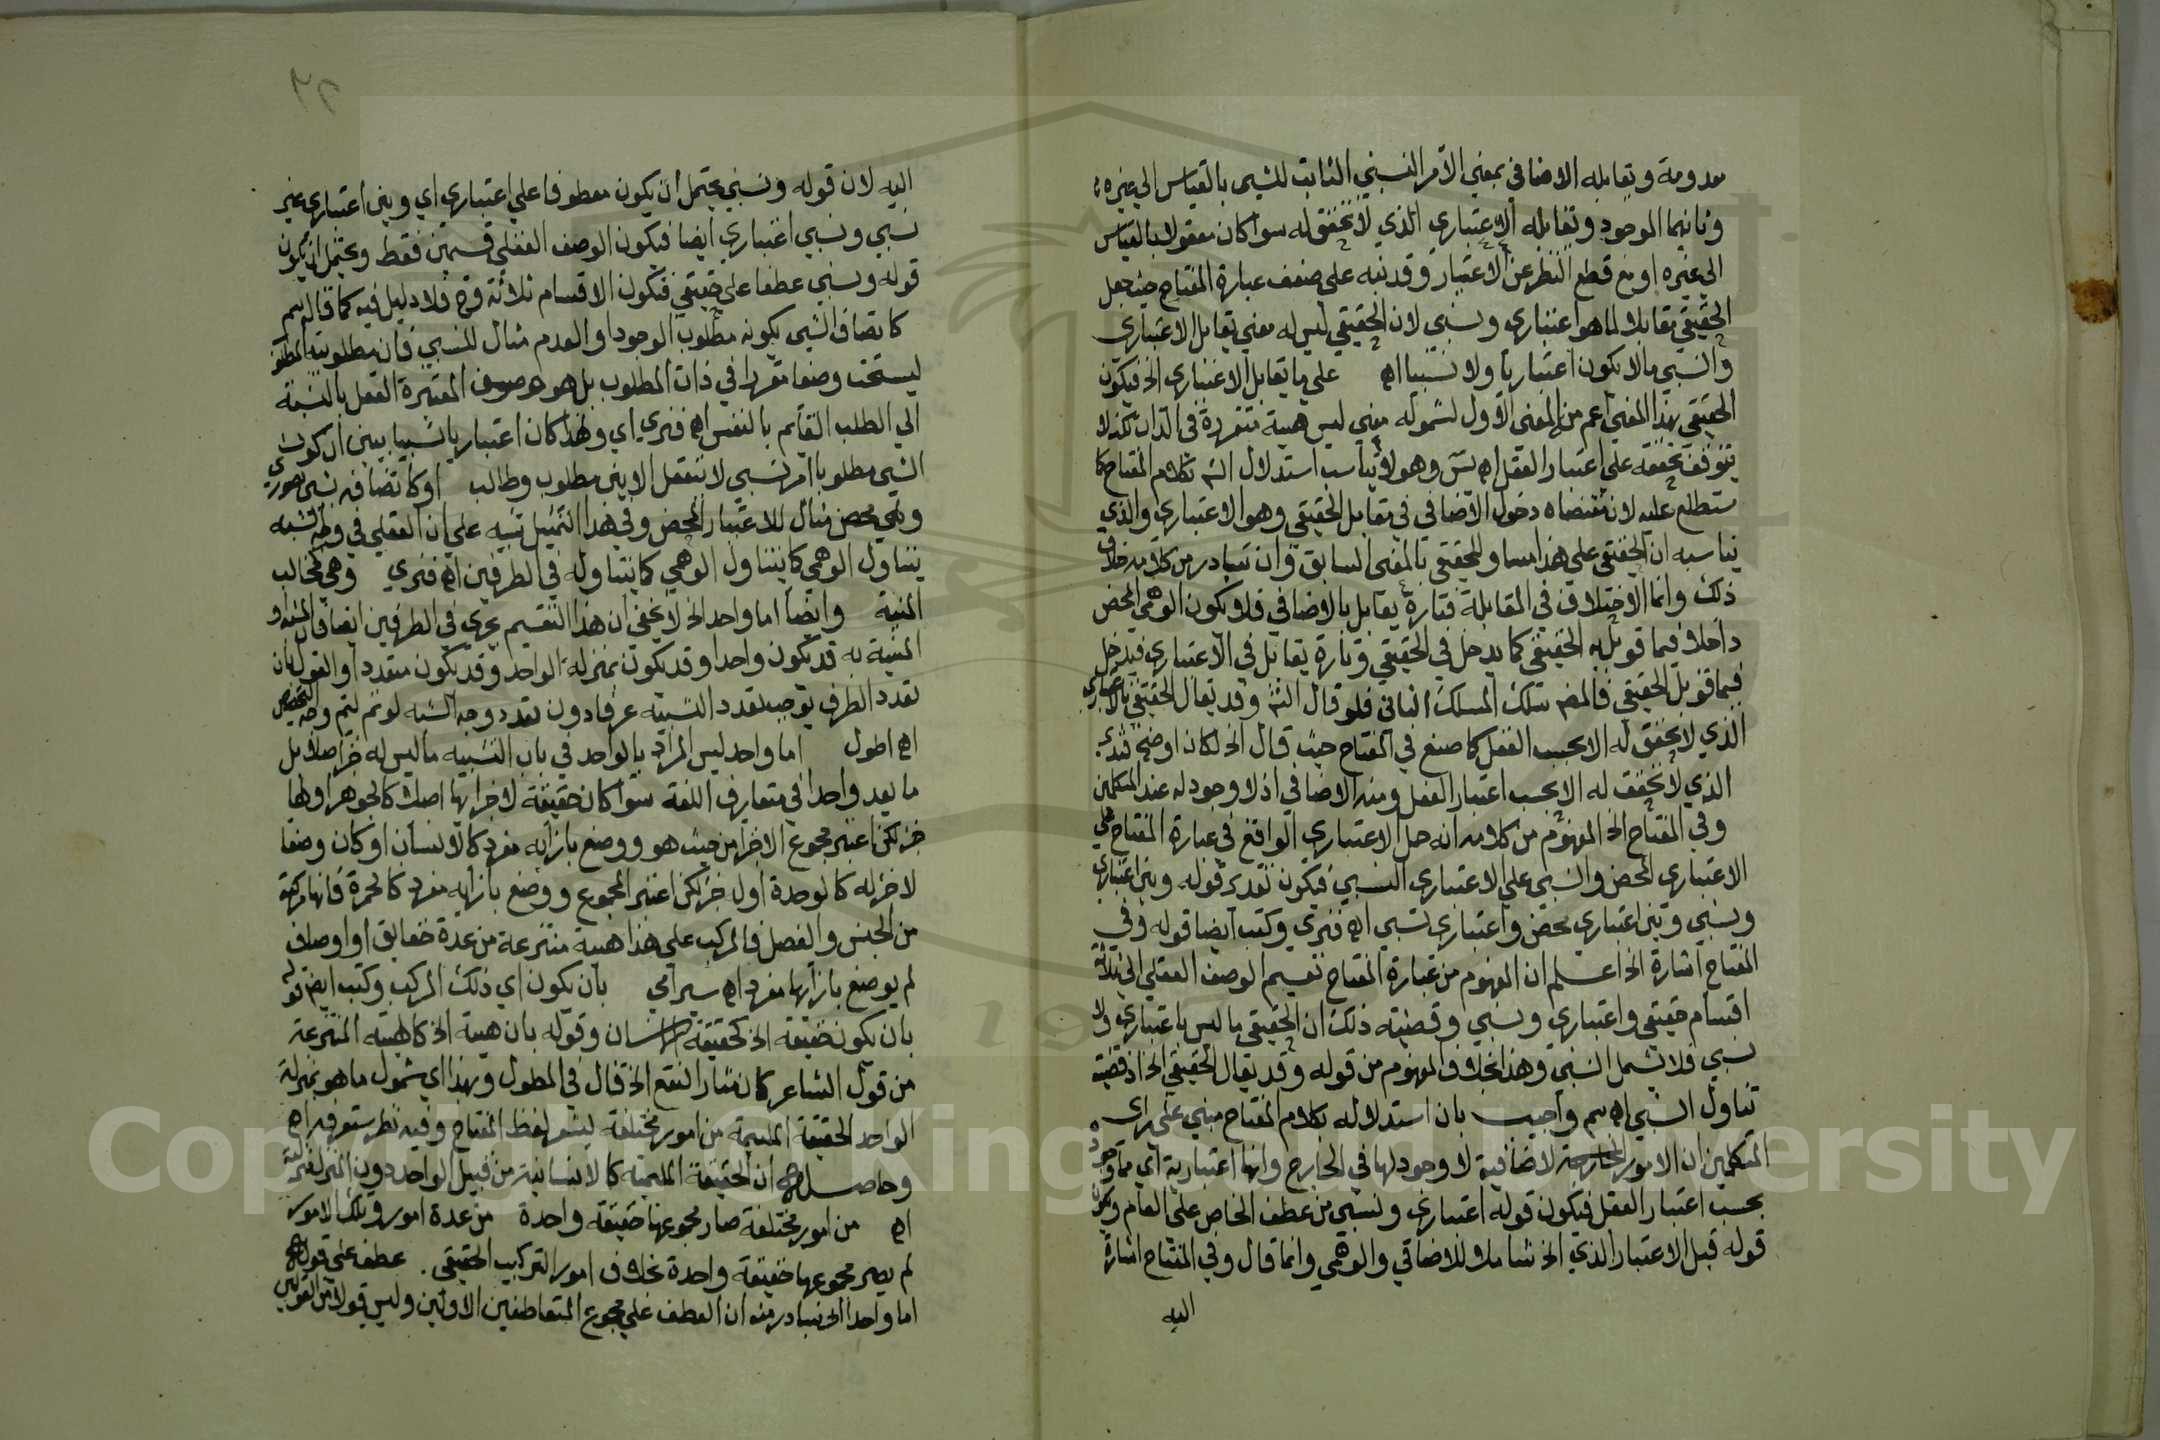 معدومة ويقابله الاضافي بمعني الامر النسبي الثابت للشيء بالقياس الي غيره
وثانيهما الموجود ويقابله الاعتباري الذي لا تحقق له سوا كان معقولا بالقياس
الي غيره او مع قطع النظر عن الاعتبار وقد نبه علي ضعف عبارة المفتاح حيث جعل
الحقيقي مقابلا لما هو اعتباري ونسبي لان الحقيقي ليس له معني يقابل الاعتباري
والنسبي مالا يكون اعتباريا ولا نسبيا اه علي ما يقابل الاعتباري الخ فيكون
الحقيقي بهذا المعني اعم من المعني الاول لشموله معني ليس هيئة متقررة في الذات لكن لا
يتوقف تحققه علي اعتبار العقل اه يس وهو لا يناسب استدلال الش بكلام المفتاح كما
ستطلع عليه لان مقتضاه دخول الاضافي في مقابل الحقيقي وهو الاعتباري والذي
يناسبه ان الحقيقي علي هذا مساو للحقيقي بالمعني السابق وان تبادر من كلامه خلاف
ذلك وانما الاختلاف في المقابلة فتارة يقابل بالاضافي فلا يكون الوهمي المحض
داخلا فيما قوبل به الحقيقي كما يدخل في الحقيقي وتارة يقابل في الاعتباري فيدخل
فيما قوبل الحقيقي فالمصم سلك المسلك الثاني فلو قال الش وقد يقال الحقيقي بالاعتباري
الذي لا تحقق له الا بحسب العقل كما صنع في المفتاح حيث قال الخ لكان اوضح فتدبر
الذي لا تحقق له الا بحسب اعتبار العقل ومنه الاضافي اذ لا وجود له عند المتكلمين
وفي المفتاح الخ المفهوم من كلامه انه حمل الاعتباري الواقع في عبارة المفتاح علي
الاعتباري المحض والنسبي علي الاعتباري النسبي فيكون تقدير قوله وبين اعتباري
ونسبي وبين اعتباري محض واعتباري نسبي اه فنري وكتب ايضا قوله وفي
المفتاح اشارة الخ اعلم ان المفهوم من عبارة المفتاح تقسيم الوصف العقلي الي ثلاثة
اقسام حقيقي واعتباري ونسبي وقضيته ذلك ان الحقيقي ما ليس باعتباري ولا
نسبي فلا يشمل النسبي وهذا بخلاف المفهوم من قوله وقد يقال الحقيقي الخ اذ قضيته
تناول النسبي اه سم واجيب بان استدلاله بكلام المفتاح مبني علي راي
المتكلمين ان الامور الاضافية لا وجود لها في الخارج وانها اعتبارية اي مما وجوده
بحسب اعتبار العقل فيكون قوله اعتباري ونسبي من عطف الخاص علي العام ويكون
قوله قبل الاعتبار الذي الخ شاملا للاضافي والوهمي وانما قال وفي المفتاح اشارة
اليه
٢٦
اليه لان قوله ونسبي يحتمل ان يكون معطوفا علي اعتباري اي وبين اعتباري غير
نسبي ونسبي اعتباري ايضا فيكون الوصف العقلي قسمين فقط ويحتمل ان يكون
قوله ونسبي عطفا علي حقيقي فيكون الاقسام ثلاثة وح فلا دليل فيه كما قاله سم
كاتصاف الشيء بكونه مطلوب الوجود او العدم مثال للنسبي فان مطلوبية المطلوب
ليست وصفا متقررا في ذات المطلوب بل هو موصوف المعتبرة العقل بالنسبة
الي الطلب القايم بالنفس اه فنري اي ولهذا كان اعتباريا نسبيا يبين ان كون
الشيء مطلوبا امر نسبي لا يتعقل الا بين مطلوب وطالب او كاتصافه بشيء تصوري
وهمي محض مثال للاعتبار المحض وفي هذا التمثيل تنبيه علي ان العقلي في وجه الشبه
يتناول الوهمي كما يتناول الوهمي كما يتناوله في الطرفين اه فنري وهي مخالب
المنية وايضا اما واحد الخ لا يخفي ان هذا التقسيم يجري في الطرفين ايضا فان المشبه و
المشبه به قد يكون واحدا وقد يكون بمنزلة الواحد وقد يكون متعددا والقول بان
تعدد الطرف يوجب تعدد التشبيه عرفا دون تعدد وجه الشبه لو تم لتم وجه التخصيص
اه اطول اما واحد ليس المراد بالواحد في باب التشبيه ما ليس له جزا اصلا بل
ما يعد واحدا في متعارف اللغة سوا كان حقيقة لا جزا لها اصلا كالجوهر او لها
جزء لكن اعتبر مجموع الاجزا من حيث هو ووضع بازايه مفرد كالانسان او كان وصفا
لا جزء له كالوحدة او له جزء لكن اعتبر المجموع ووضع بازايه مفرد كالحمرة فانها مركبة
من الجنس والفصل فالمركب علي هذا هيئة منتزعة من عدة حقايق او اوصاف
لم يوضع بازايها مفرد اه سيرامي بان يكون اي ذلك المركب وكتب ايضا قوله
بان يكون حقيقة الخ كحقيقة الانسان وقوله بان هيئة الخ كالهيئة المنتزعة
من قول الشاعر كان مثار النقع الخ قال في المطول وبهذا اي شمول ما هو بمنزلة
الواحد الحقيقة الملتئمة من امور مختلفة يشعر لفظ المفتاح وفيه نظر ستعرفه اه
وحاصله ان الحقيقة الملتئمة كالانسانية من قبيل الواحد دون المنزل منزلته
اه من امور مختلفة صار مجموعها حقيقة واحدة من عدة امور وتلك الامور
لم يصر مجموعها حقيقة واحدة بخلاف امور التركيب الحقيقي. عطف علي قوله
اما واحد الخ يتبادر منه ان العطف علي مجموع المتعاطفين الاولين وليس قولا من القولين
Copyright © King Saud University